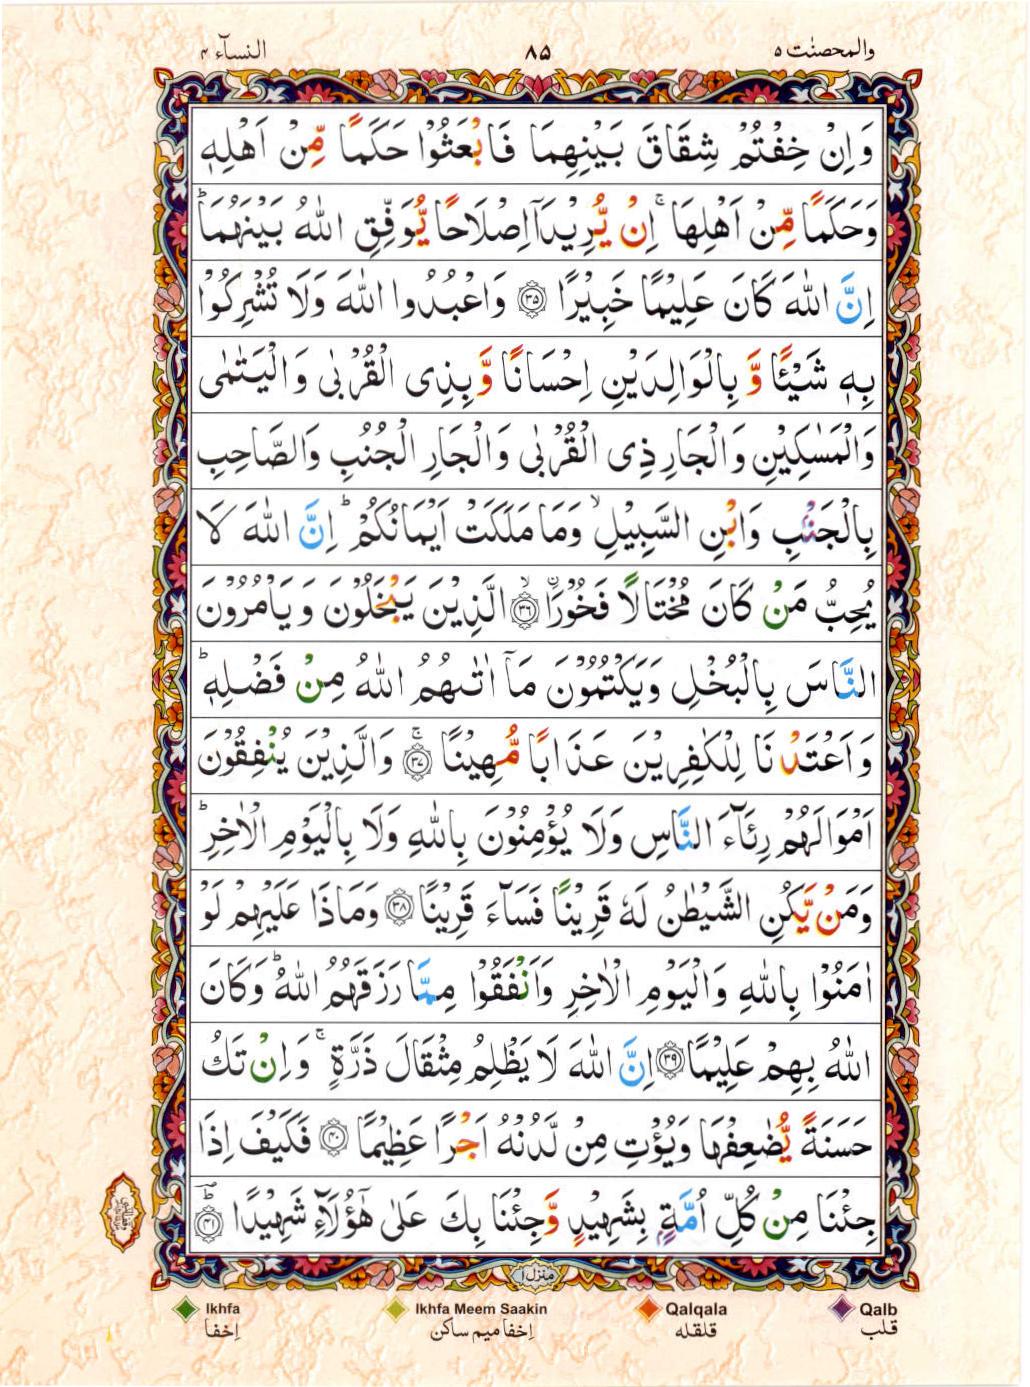 والمحصنٰت ۵
۸۵
النسآء ۴
وَاِنْ خِفْتُمْ شِقَاقَ بَيْنِهِمَا فَابْعَثُوْا حَكَمًا مِّنْ اَهْلِهٖ
وَحَكَمًا مِّنْ اَهْلِهَا ۚ اِنْ يُّرِيْدَاۤ اِصْلَاحًا يُّوَفِّقِ اللّٰهُ بَيْنَهُمَا ؕ
اِنَّ اللّٰهَ كَانَ عَلِيْمًا خَبِيْرًا ﴿۳۵﴾ وَاعْبُدُوا اللّٰهَ وَلَا تُشْرِكُوْا
بِهٖ شَيْـًٔا وَّ بِالْوَالِدَيْنِ اِحْسَانًا وَّ بِذِى الْقُرْبٰى وَالْيَتٰمٰى
وَالْمَسٰكِيْنِ وَالْجَارِ ذِى الْقُرْبٰى وَالْجَارِ الْجُنُبِ وَالصَّاحِبِ
بِالْجَنْۢبِ وَابْنِ السَّبِيْلِ ۙ وَمَا مَلَكَتْ اَيْمَانُكُمْ ؕ اِنَّ اللّٰهَ لَا
يُحِبُّ مَنْ كَانَ مُخْتَالًا فَخُوْرَا ۙ ﴿۳۶﴾ الَّذِيْنَ يَبْخَلُوْنَ وَيَاْمُرُوْنَ
النَّاسَ بِالْبُخْلِ وَيَكْتُمُوْنَ مَاۤ اٰتٰٮهُمُ اللّٰهُ مِنْ فَضْلِهٖ ؕ
وَاَعْتَدْنَا لِلْكٰفِرِيْنَ عَذَابًا مُّهِيْنًا ۚ ﴿۳۷﴾ وَالَّذِيْنَ يُنْفِقُوْنَ
اَمْوَالَهُمْ رِئَآءَ النَّاسِ وَلَا يُؤْمِنُوْنَ بِاللّٰهِ وَلَا بِالْيَوْمِ الْاٰخِرِ ؕ
وَمَنْ يَّكُنِ الشَّيْطٰنُ لَهٗ قَرِيْنًا فَسَآءَ قَرِيْنًا ﴿۳۸﴾ وَمَاذَا عَلَيْهِمْ لَوْ
اٰمَنُوْا بِاللّٰهِ وَالْيَوْمِ الْاٰخِرِ وَاَنْفَقُوْا مِمَّا رَزَقَهُمُ اللّٰهُ ؕ وَكَانَ
اللّٰهُ بِهِمْ عَلِيْمًا ﴿۳۹﴾ اِنَّ اللّٰهَ لَا يَظْلِمُ مِثْقَالَ ذَرَّةٍ ۚ وَاِنْ تَكُ
حَسَنَةً يُّضٰعِفْهَا وَيُؤْتِ مِنْ لَّدُنْهُ اَجْرًا عَظِيْمًا ﴿۴۰﴾ فَكَيْفَ اِذَا
جِئْنَا مِنْ كُلِّ اُمَّةٍۭ بِشَهِيْدٍ وَّجِئْنَا بِكَ عَلٰى هٰٓؤُلَآءِ شَهِيْدًا ؕ ﴿۴۱﴾
منزل ۱
Ikhfa
Ikhfa Meem Saakin
Qalqala
Qalb
اِخفا
اِخفا میم ساکن
قلقله
قلب